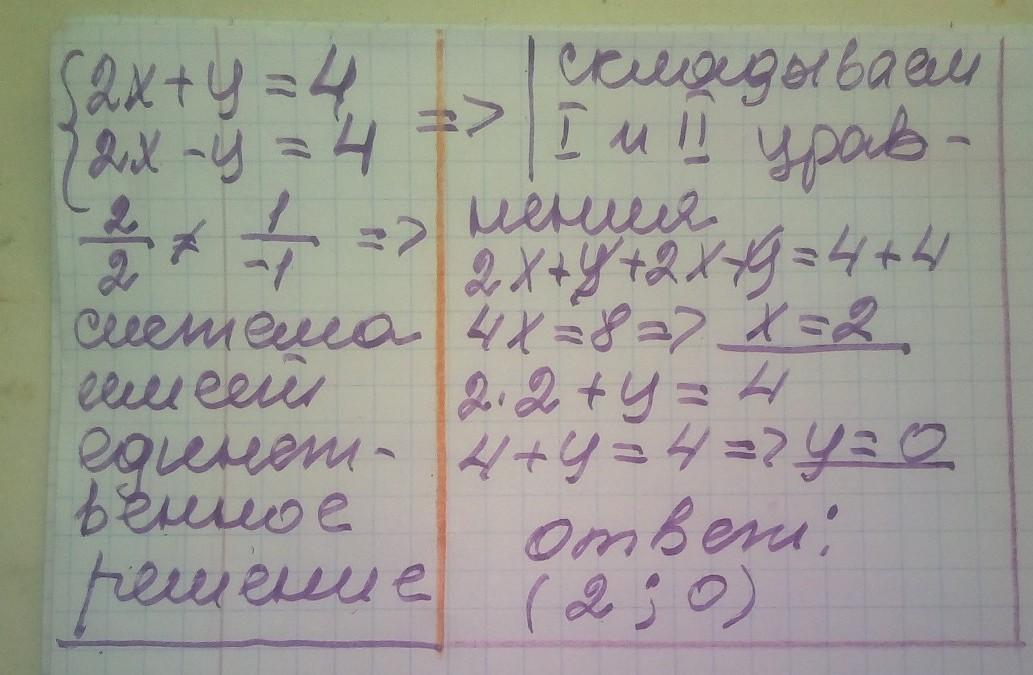 2x+y=4
2x-y=4
2/2 ≠ 1/-1 =>
система
имеет
единст-
венное
решение
=> | складываем
I и II урав-
нения
2x+y+2x-y=4+4
4x=8=> x=2
2·2+y=4
4+y=4=> y=0
ответ:
(2;0)